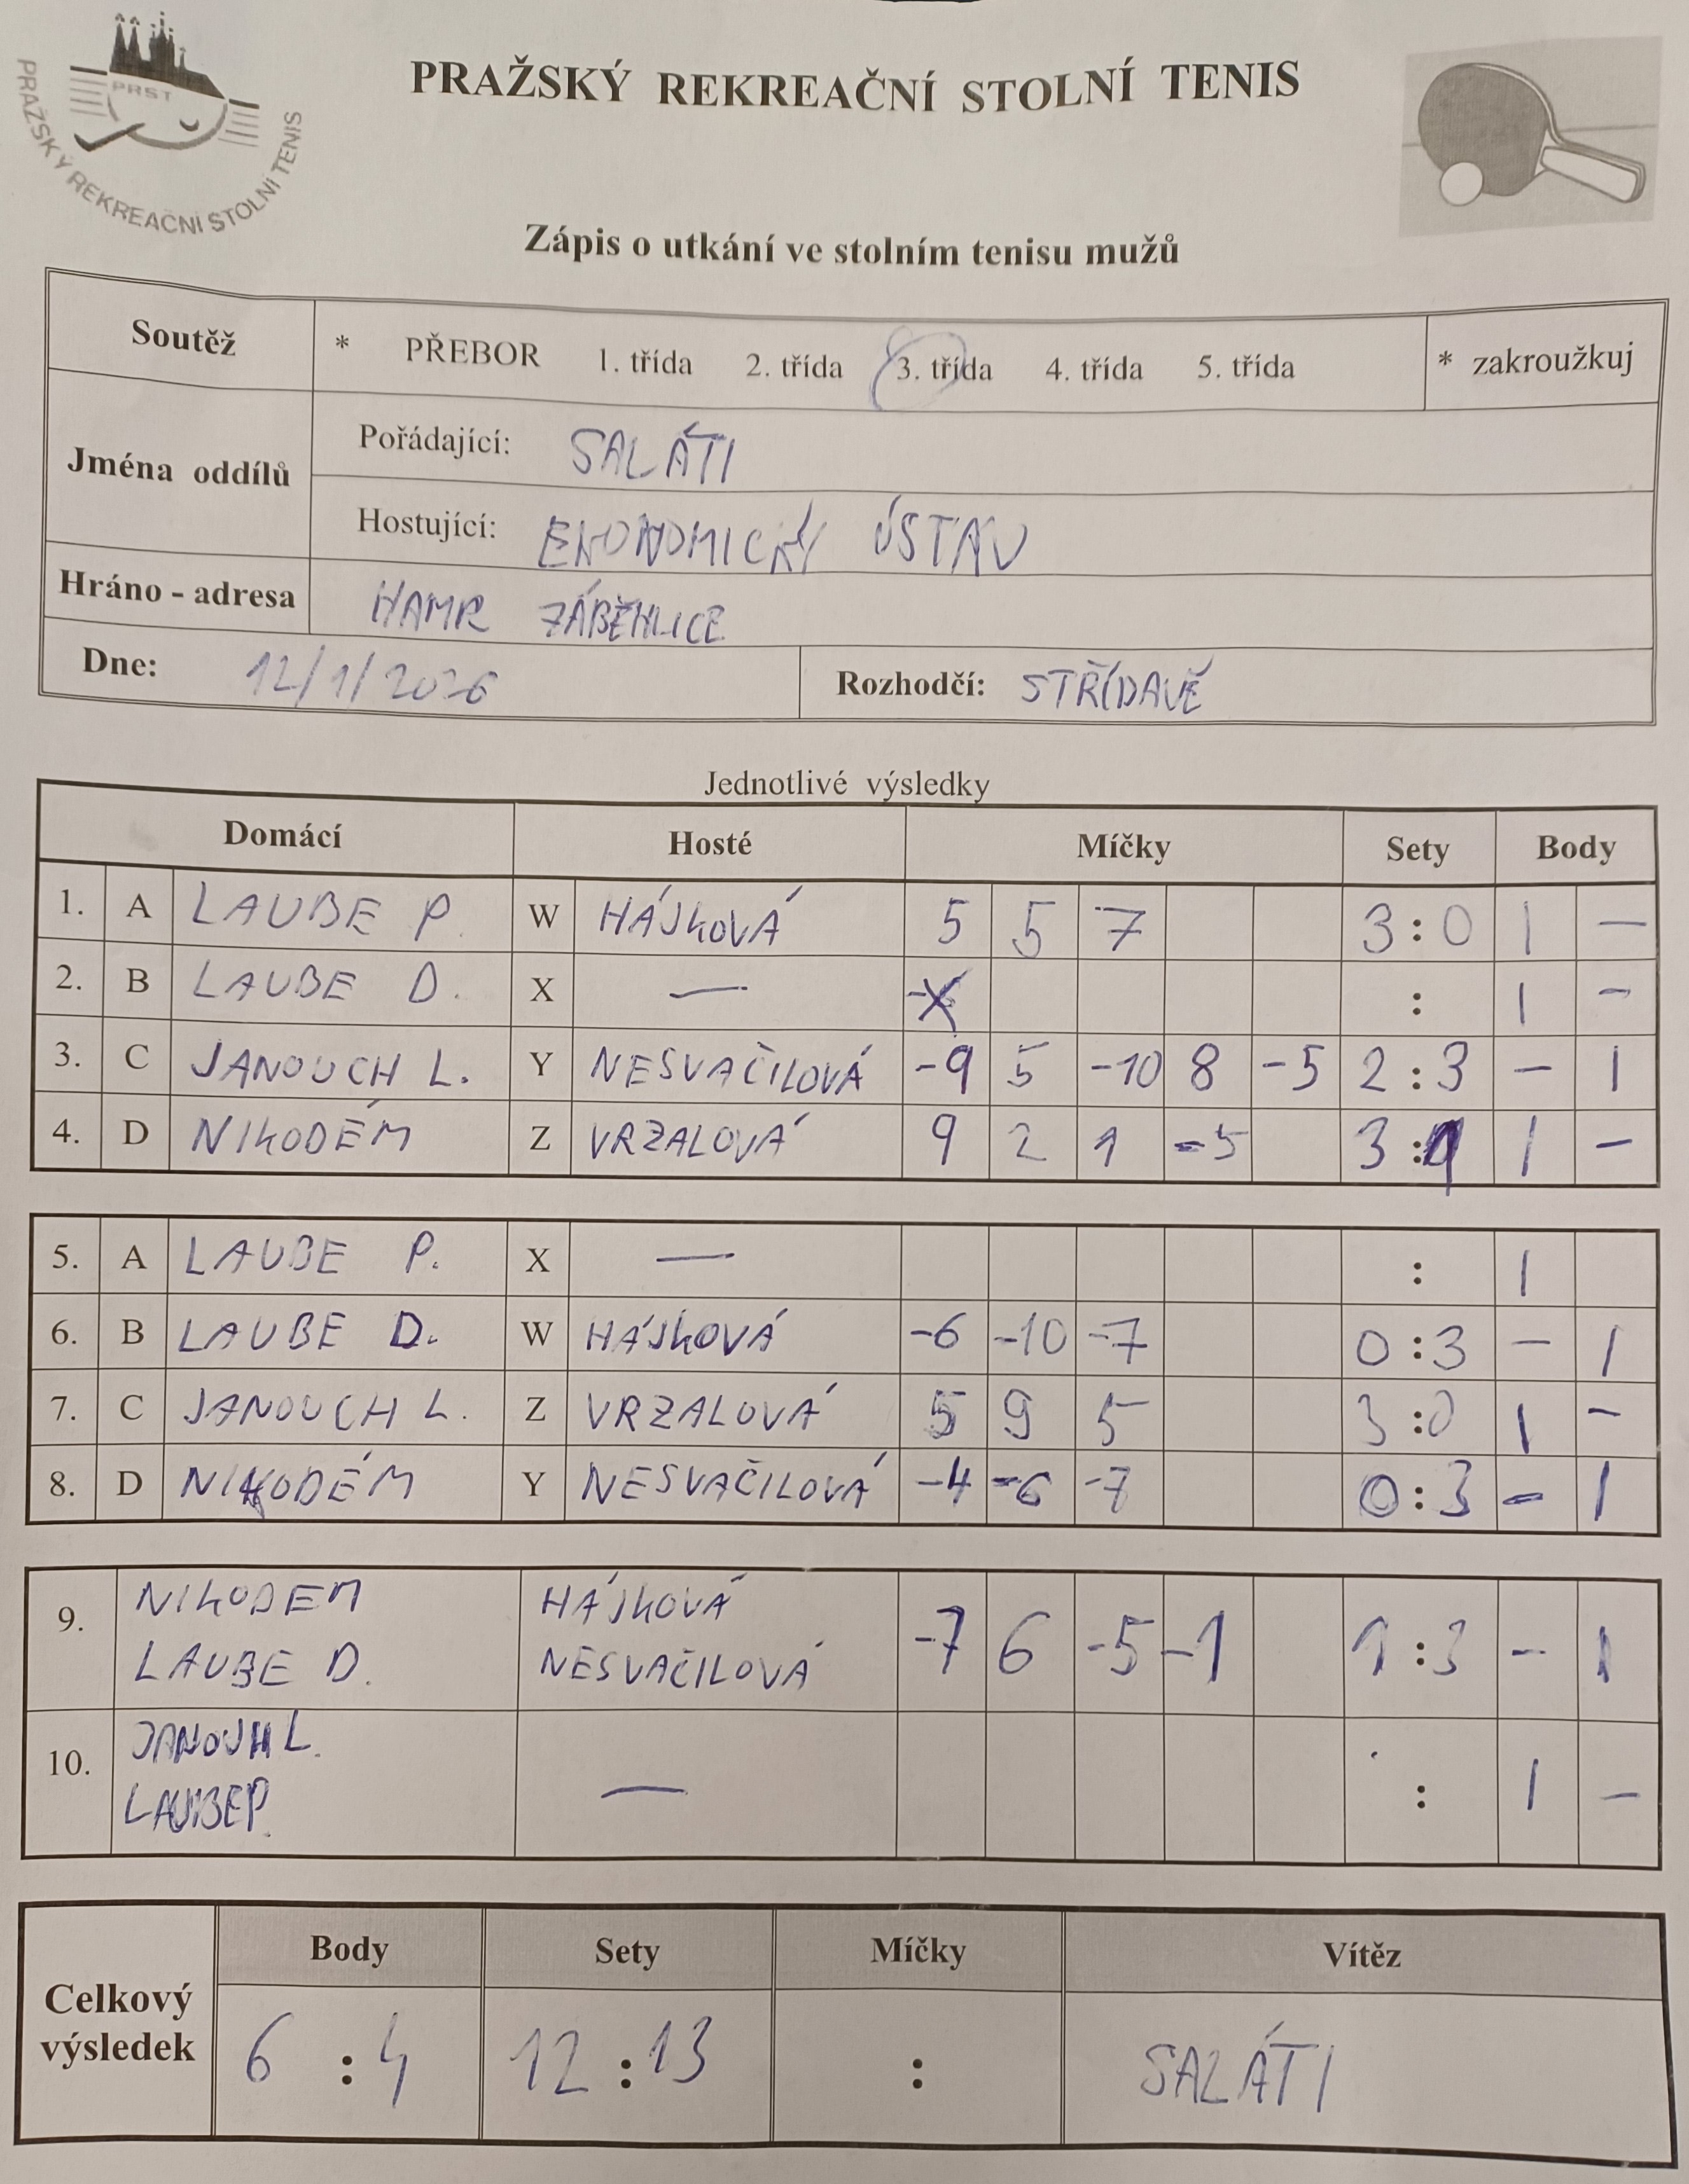 PRST
PRAŽSKÝ REKREAČNÍ STOLNÍ TENIS
PRAŽSKÝ REKREAČNÍ STOLNÍ TENIS
Zápis o utkání ve stolním tenisu mužů
Soutěž * PŘEBOR 1. třída 2. třída 3. třída 4. třída 5. třída * zakroužkuj
Jména oddílů
Pořádající: SALÁTI
Hostující: EKONOMICKÝ ÚSTAV
Hráno - adresa HAMR ZÁBĚHLICE
Dne: 12/1/2026 Rozhodčí: STŘÍDAVĚ
Jednotlivé výsledky
Domácí Hosté Míčky Sety Body
1. A LAUBE P. W HÁJKOVÁ 5 5 7 3 : 0 1 —
2. B LAUBE D. X — : 1 —
3. C JANOUCH L. Y NESVAČILOVÁ -9 5 -10 8 -5 2 : 3 — 1
4. D NIKODÉM Z VRZALOVÁ 9 2 1 -5 3 : 1 1 —
5. A LAUBE P. X — : 1
6. B LAUBE D. W HÁJKOVÁ -6 -10 -7 0 : 3 — 1
7. C JANOUCH L. Z VRZALOVÁ 5 9 5 3 : 0 1 —
8. D NIKODÉM Y NESVAČILOVÁ -4 -6 -7 0 : 3 — 1
9. NIKODEM HÁJKOVÁ -7 6 -5 -1 1 : 3 — 1
LAUBE D. NESVAČILOVÁ
10. JANOUH L. — : 1 —
LAUBE P.
Celkový výsledek
Body Sety Míčky Vítěz
6 : 4 12 : 13 : SALÁTI